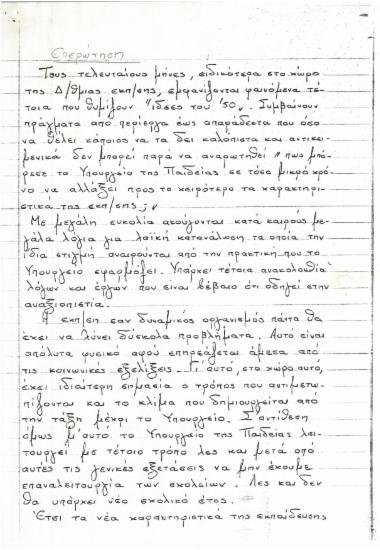 Επερώτηση
Τους τελευταίους μήνες, ειδικότερα στο χώρο
της Δ/θμιας εκπ/σης, εμφανίζονται φαινόμενα τέ-
τοια που θυμίζουν "ιδέες του '50". Συμβαίνουν
πράγματα από περίεργα έως απαράδεκτα που όσο
να θέλει κάποιος να τα δει καλόπιστα και αντικει-
μενικά δεν μπορεί παρά να αναρωτηθεί "πως μπό-
ρεσε το Υπουργείο της Παιδείας σε τόσο μικρό χρό-
νο να αλλάξει προς το χειρότερο τα χαρακτηρι-
στικά της εκπ/σης;"
Με μεγάλη ευκολία ακούγονται κατά καιρούς με-
γάλα λόγια για λαϊκή κατανάλωση τα οποία την
ίδια στιγμή αναιρούνται από την πρακτική που το
Υπουργείο εφαρμόζει. Υπάρχει τέτοια ανακολουθία
λόγων και έργων που είναι βέβαιο ότι οδηγεί στην
αναξιοπιστία.
Η εκπ/ση σαν δυναμικός οργανισμός πάντα θα
έχει να λύνει δύσκολα προβλήματα. Αυτό είναι
απόλυτα φυσικό αφού επηρεάζεται άμεσα από
τις κοινωνικές εξελίξεις. Γι' αυτό, στο χώρο αυτό,
έχει ιδιαίτερη σημασία ο τρόπος που αντιμετω-
πίζονται και το κλίμα που δημιουργείται από
την τάξη μέχρι το Υπουργείο. Σ' αντίθεση
όμως μ' αυτό το Υπουργείο της Παιδείας λει-
τουργεί με τέτοιο τρόπο λες και μετά από
αυτές τις γενικές εξετάσεις να μην έχουμε
επαναλειτουργία των σχολείων. Λες και δεν
θα υπάρχει νέο σχολικό έτος.
Έτσι τα νέα χαρακτηριστικά της εκπαίδευσης